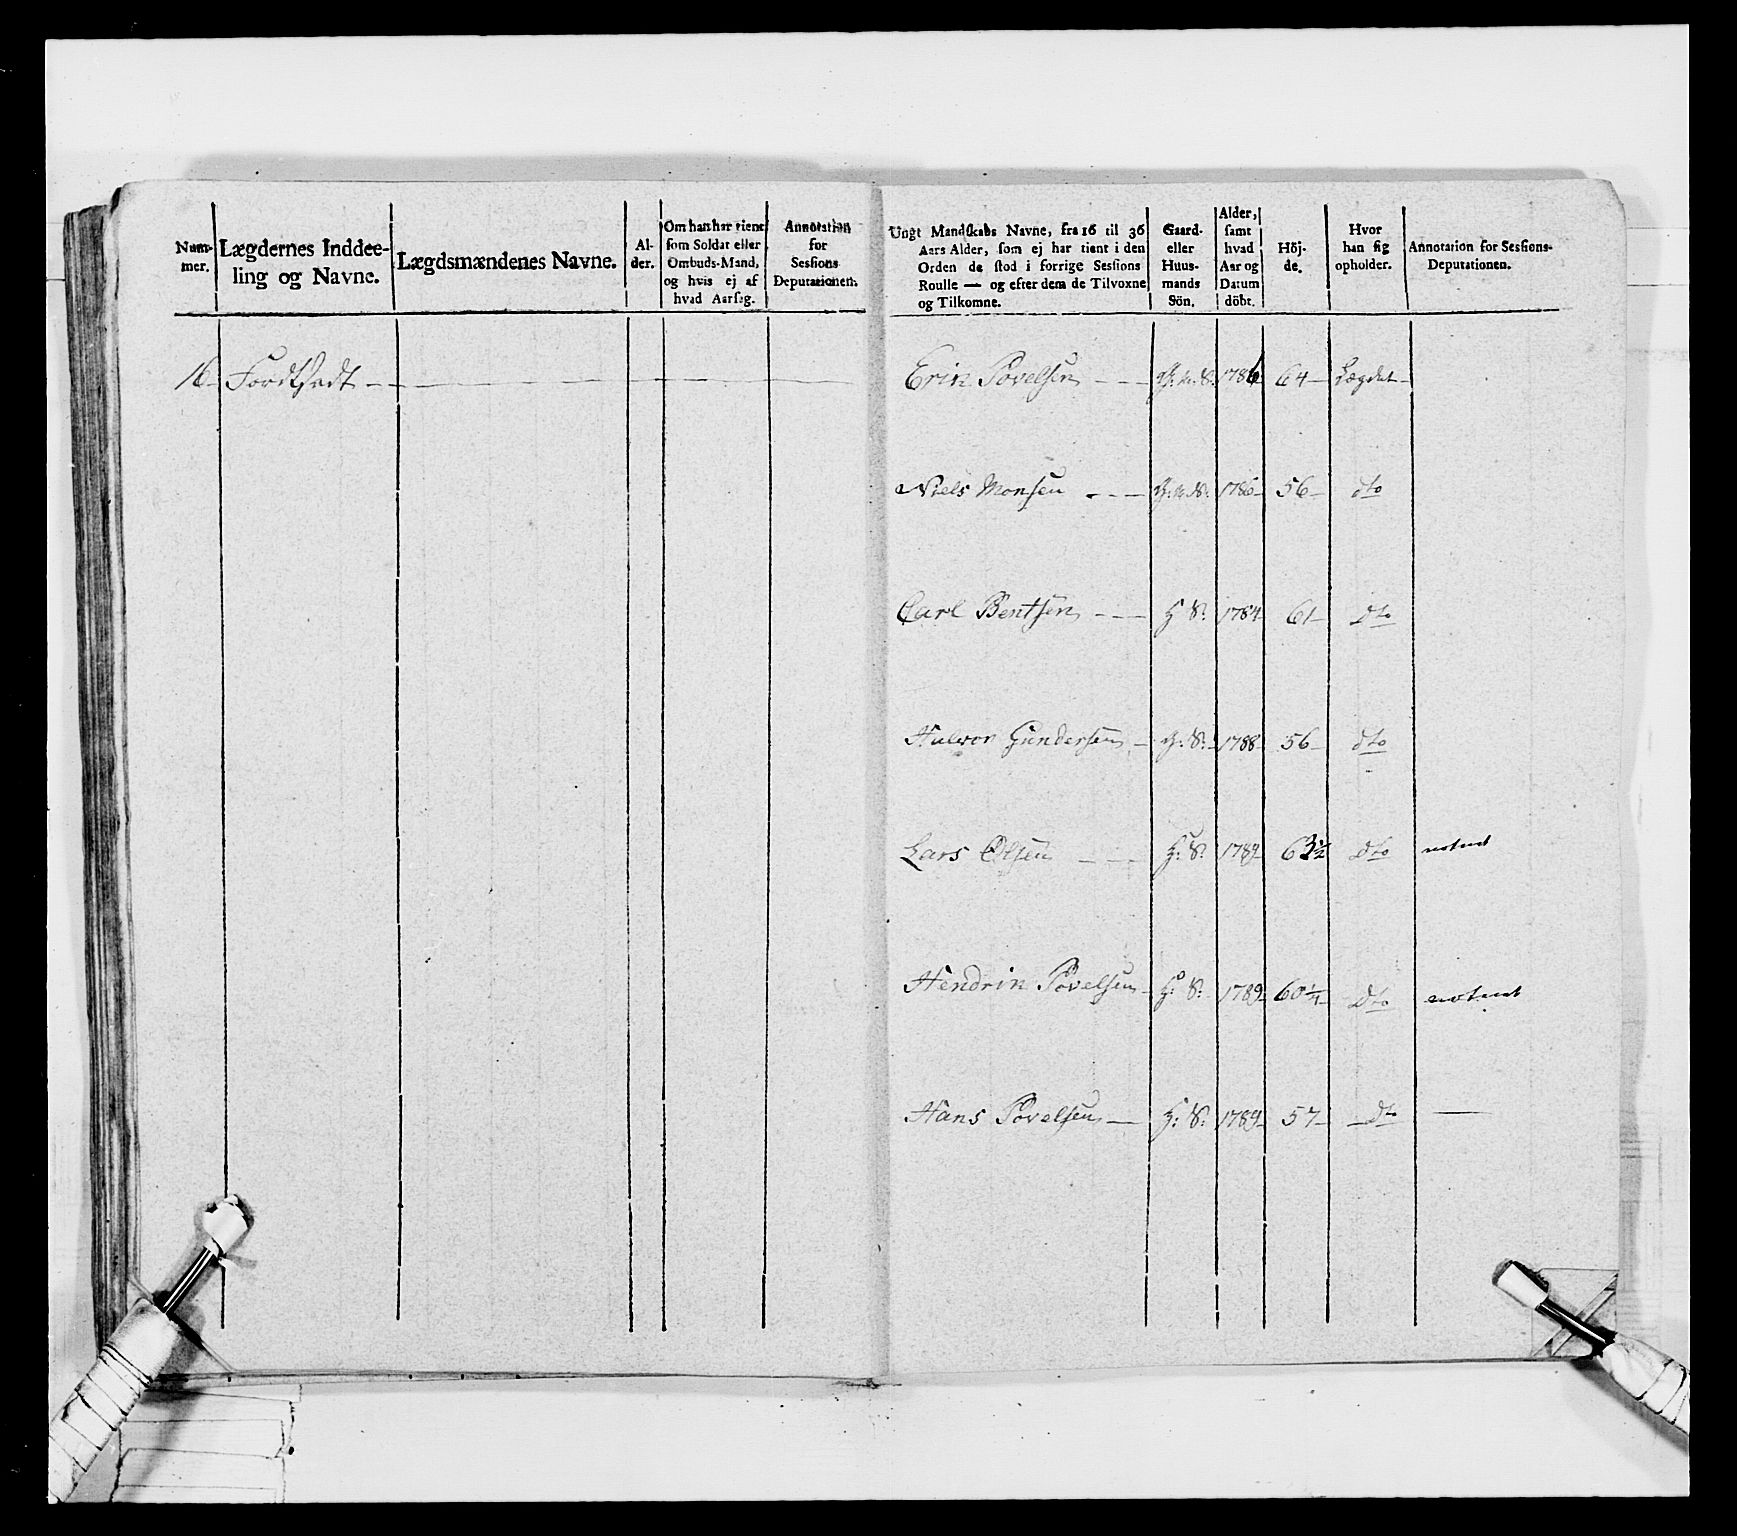 Num-
mer.
Lægdernes Inddee-
ling og Navne.
Lægdsmændenes Navne.
Al-
der.
Om han har tient
som Soldat eller
Ombuds-Mand,
og hvis ej af
hvad Aarsag.
Annotation
for
Sessions
Deputationen.
16 Fordtsadt
Ungt Mandskabs Navne, fra 16 til 36
Aars Alder, som ej har tient i den
Orden de stod i forrige Sessions
Roulle — og efter dem de Tilvoxne
og Tilkomne.
Gaard-
eller
Huus-
mands
Sön.
Alder,
samt
hvad
Aar og
Datum
döbt.
Höj-
de.
Hvor
han sig
opholder.
Annotation for Sessions-
Deputationen.
Erik Povelsen - - - 1786 64 - Lægdet
Niels Monsen - - - 1786 - 56 - dto
Carl Bentsen - - - H S: 1784 - 61 - dto
Halvor Gundersen - G: S: - 1788 - 56 - dto
Lars Olsen - - - H: S: 1789 - 63½ dto notent
Hendrik Povelsen - H: S: 1789 - 60¼ dto notent
Hans Povelsen — H: S: 1789 - 57 - dto —